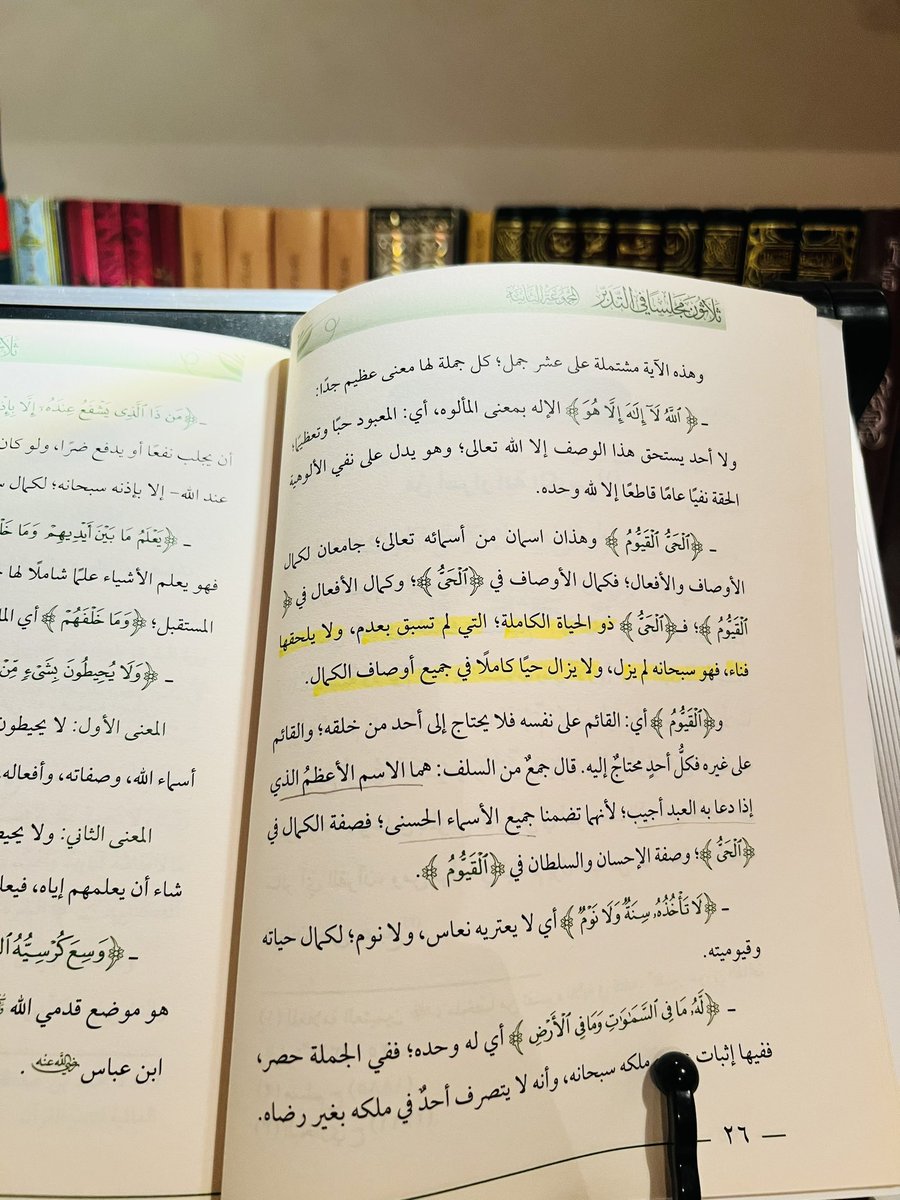 ثلاثون مجلسا في التدبر المجموعة الثانية
وهذه الآية مشتملة على عشر جمل؛ كل جملة لها معنى عظيم جدًا:
ـ ﴿ٱللَّهُ لَآ إِلَٰهَ إِلَّا هُوَ﴾ الإله بمعنى المألوه، أي: المعبود حبًا وتعظيمًا؛
ولا أحد يستحق هذا الوصف إلا الله تعالى؛ وهو يدل على نفي الألوهية
الحقة نفيًا عامًا قاطعًا إلا لله وحده.
ـ ﴿ٱلْحَيُّ ٱلْقَيُّومُ﴾ وهذان اسمان من أسمائه تعالى؛ جامعان لكمال
الأوصاف والأفعال؛ فكمال الأوصاف في ﴿ٱلْحَيُّ﴾؛ وكمال الأفعال في ﴿
ٱلْقَيُّومُ﴾؛ فـ﴿ٱلْحَيُّ﴾ ذو الحياة الكاملة؛ التي لم تسبق بعدم، ولا يلحقها
فناء، فهو سبحانه لم يزل، ولا يزال حيًا كاملًا في جميع أوصاف الكمال.
و﴿ٱلْقَيُّومُ﴾ أي: القائم على نفسه فلا يحتاج إلى أحد من خلقه؛ والقائم
على غيره فكلُّ أحدٍ محتاجٌ إليه. قال جمعٌ من السلف: هما الاسم الأعظمُ الذي
إذا دعا به العبد أجيب؛ لأنهما تضمنا جميع الأسماء الحسنى؛ فصفة الكمال في
﴿ٱلْحَيُّ﴾؛ وصفة الإحسان والسلطان في ﴿ٱلْقَيُّومُ﴾.
ـ ﴿لَا تَأْخُذُهُۥ سِنَةٌ وَلَا نَوْمٌ﴾ أي لا يعتريه نعاس، ولا نوم؛ لكمال حياته
وقيوميته.
ـ ﴿لَّهُۥ مَا فِى ٱلسَّمَٰوَٰتِ وَمَا فِى ٱلْأَرْضِ﴾ أي له وحده؛ ففي الجملة حصر،
ففيها إثبات ملكه سبحانه، وأنه لا يتصرف أحدٌ في ملكه بغير رضاه.
ـ ٢٦ ـ
ـ ﴿مَن ذَا ٱلَّذِى يَشْفَعُ عِندَهُۥٓ إِلَّا
أن يجلب نفعًا أو يدفع ضرًا، ولو كان
عند الله- إلا بإذنه سبحانه؛ لكمال
ـ ﴿يَعْلَمُ مَا بَيْنَ أَيْدِيهِمْ وَمَا
فهو يعلم الأشياء علمًا شاملًا لها
المستقبل؛ ﴿وَمَا خَلْفَهُمْ﴾ أي
ـ ﴿وَلَا يُحِيطُونَ بِشَىْءٍ مِّنْ
المعنى الأول: لا يحيطون
أسماء الله، وصفاته، وأفعاله.
المعنى الثاني: ولا
شاء أن يعلمهم إياه،
ـ ﴿وَسِعَ كُرْسِيُّهُ
هو موضع قدمي الله
ابن عباس رضي الله عنه.